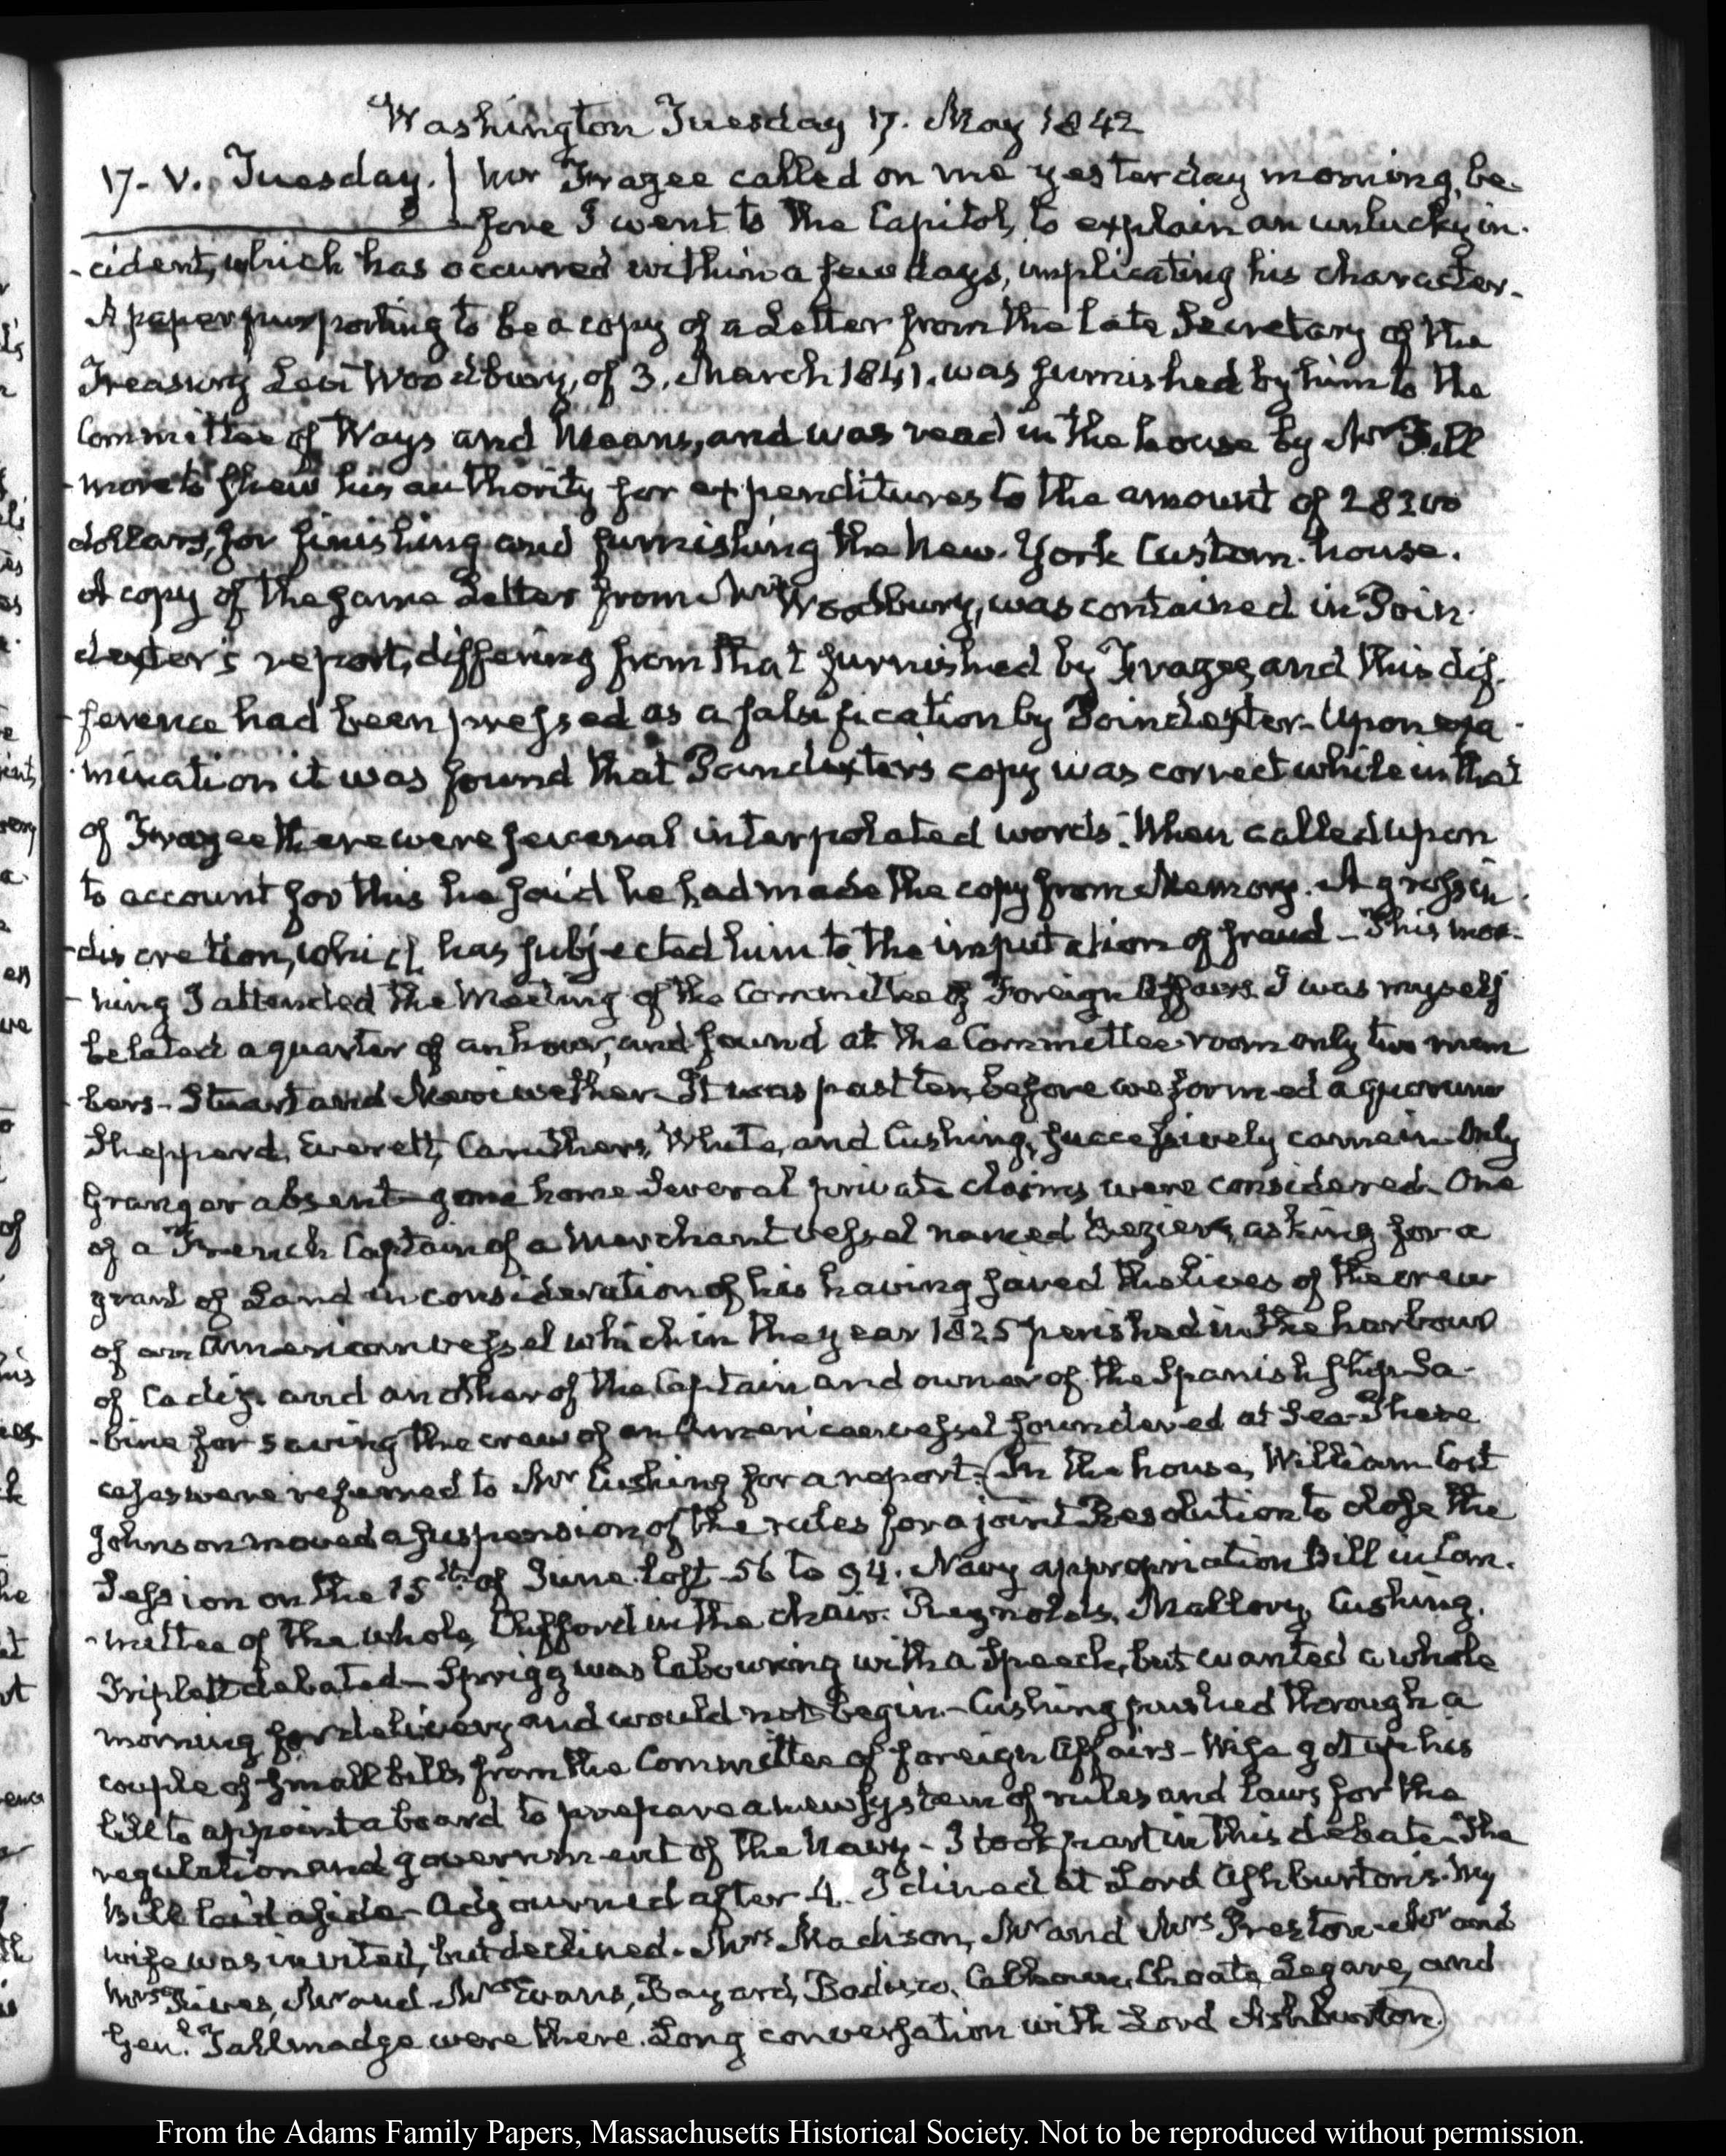 Washington Tuesday 17. May 1842
17. V. Tuesday. | Mr Frazee called on me yesterday morning, be-
fore I went to the Capitol, to explain an unlucky in-
cident, which has occurred within a few days, implicating his character.
A paper purporting to be a copy of a Letter from the late Secretary of the
Treasury Levi Woodbury, of 3. March 1841. was furnished by him to the
Committee of Ways and Means, and was read in the house by Mr Fill
more to shew his authority for expenditures to the amount of 28200
dollars, for finishing and furnishing the New-York Custom-house.
A copy of the same Letter from Mr Woodbury, was contained in Poin-
dexter's report, differing from that furnished by Frazee, and this dif-
ference had been pressed as a falsification by Poindexter. Upon exa-
mination it was found that Poindexter's copy was correct while in that
of Frazee there were several interpolated words. When called upon
to account for this he said he had made the copy from Memory. A gross in-
discretion, which has subjected him to the imputation of fraud — This mor-
ning I attended the Meeting of the Committee of Foreign Affairs. I was myself
belated a quarter of an hour, and found at the Committee room only two mem
bers — Stuart and Meriwether. It was past ten, before we formed a quorum
Sheppard, Everett, Caruthers, White, and Cushing, successively came in. Only
Granger absent — gone home. Several private claims were considered. One
of a French Captain of a Merchant vessel named Beziers, asking for a
grant of Land in consideration of his having saved the lives of the crew
of an American vessel which in the year 1825 perished in the harbour
of Cadiz. and another of the Captain and owner of the Spanish ship Sa-
bine for saving the crew of an American vessel foundered at Sea. These
cases were referred to Mr Cushing for a report. (In the house, William Cost
Johnson moved a suspension of the rules for a joint Resolution to close the
Session on the 15th of June. lost 56 to 94. Navy appropriation Bill in Com-
mittee of the whole, Clifford in the chair. Reynolds, Mallory, Cushing,
Triplett debated — Sprigg was labouring with a Speech, but wanted a whole
morning for delivery and would not begin. — Cushing pushed through a
couple of small bills from the Committee of foreign Affairs — Wise got up his
bill to appoint a board to prepare a new system of rules and laws for the
regulation and government of the Navy — I took part in this debate. The
Bill laid aside — Adjourned after 4. I dined at Lord Ashburton's. My
wife was invited, but declined. Mrs Madison, Mr and Mrs Preston — Mr and
Mrs Rives, Mr and Mrs Evans, Bayard, Bodisco, Calhoun, Choate, Legare, and
Genl. Tallmadge were there. Long conversation with Lord Ashburton.)
From the Adams Family Papers, Massachusetts Historical Society. Not to be reproduced without permission.